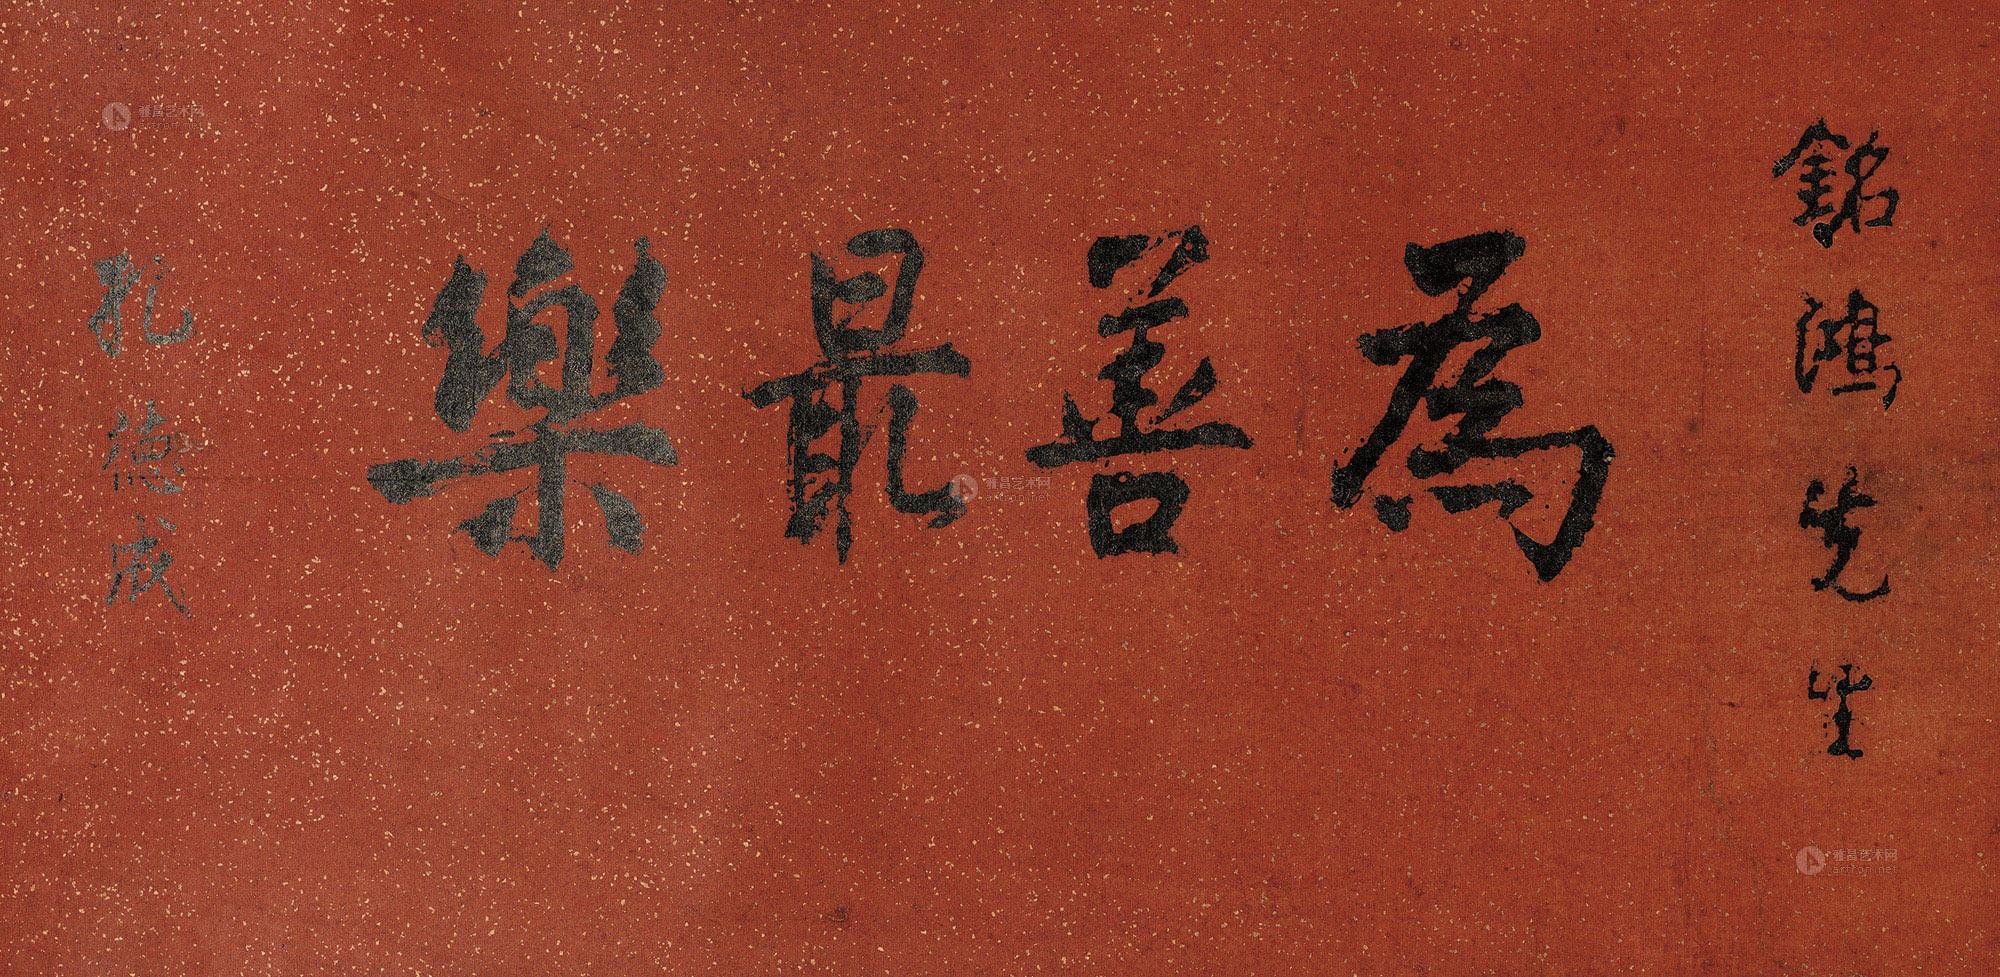 銘鴻先生
為善最樂
孔德成
雅昌艺术网
artron.net
雅昌艺术网
artron.net
雅昌艺术网
artron.net